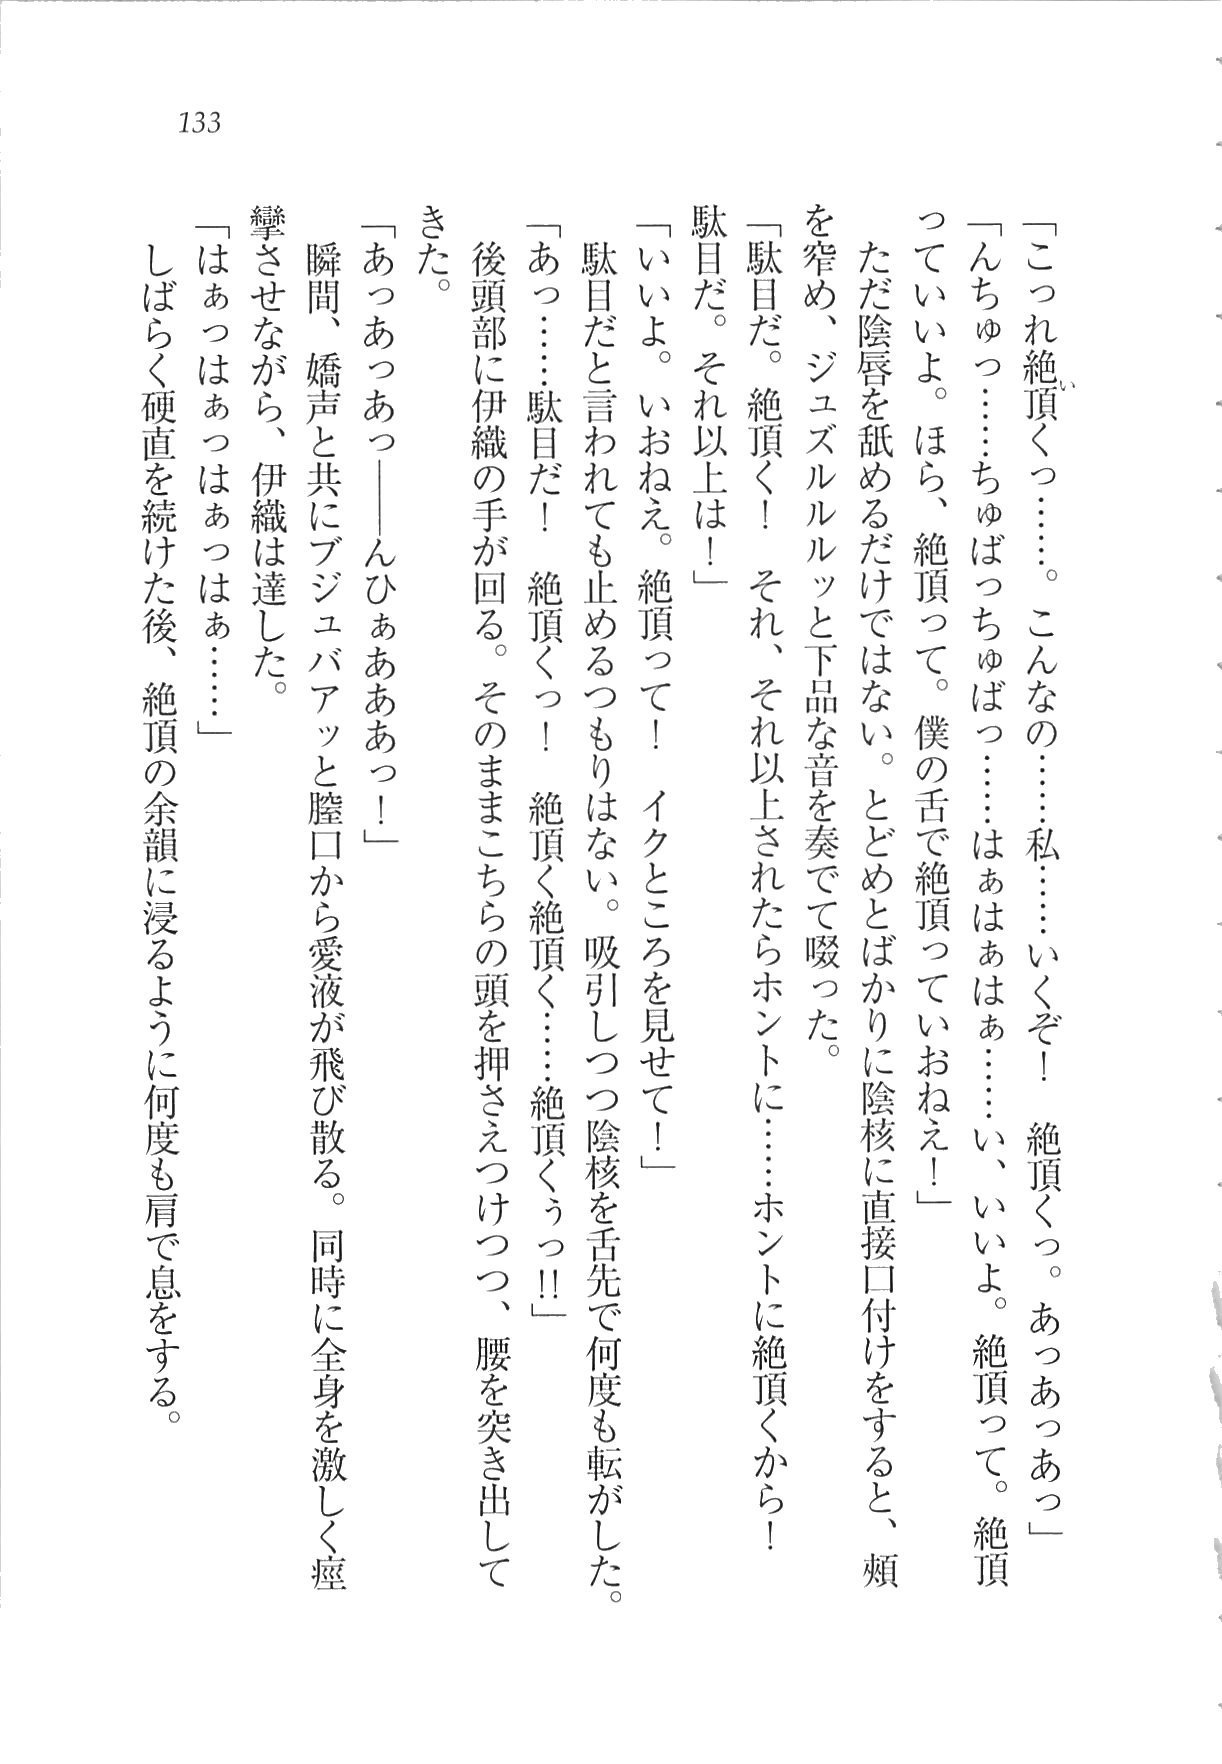 133
「こっれ絶頂くっ……。こんなの……私……いくぞ！　絶頂くっ。あっあっあっ」
「んちゅっ……ちゅばっちゅばっ……はぁはぁはぁ……い、いいよ。絶頂って。絶頂
っていいよ。ほら、絶頂って。僕の舌で絶頂っていおねえ！」
　ただ陰唇を舐めるだけではない。とどめとばかりに陰核に直接口付けをすると、頬
を窄め、ジュズルルルッと下品な音を奏でて啜った。
「駄目だ。絶頂く！　それ、それ以上されたらホントに……ホントに絶頂くから！
駄目だ。それ以上は！」
「いいよ。いおねえ。絶頂って！　イクところを見せて！」
　駄目だと言われても止めるつもりはない。吸引しつつ陰核を舌先で何度も転がした。
「あっ……駄目だ！　絶頂くっ！　絶頂く絶頂く……絶頂くぅっ!!」
　後頭部に伊織の手が回る。そのままこちらの頭を押さえつけつつ、腰を突き出して
きた。
「あっあっあっ――んひぁあああっ！」
　瞬間、嬌声と共にブジュバアッと膣口から愛液が飛び散る。同時に全身を激しく痙
攣させながら、伊織は達した。
「はぁっはぁっはぁっはぁ……」
　しばらく硬直を続けた後、絶頂の余韻に浸るように何度も肩で息をする。